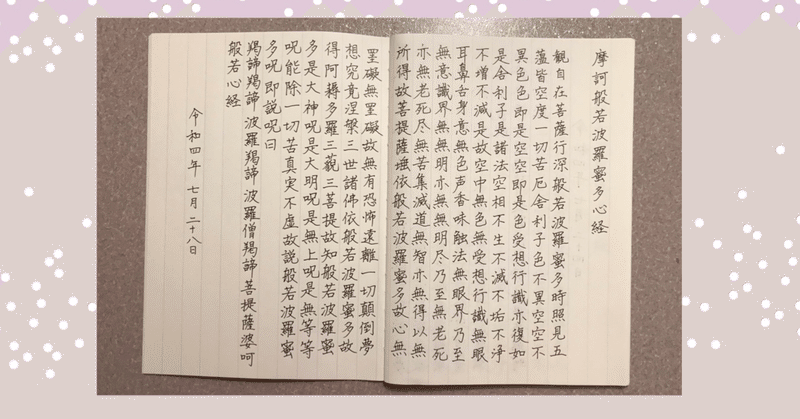 摩訶般若波羅蜜多心経
観自在菩薩行深般若波羅蜜多時照見五
蘊皆空度一切苦厄舎利子色不異空空不
異色色即是空空即是色受想行識亦復如
是舎利子是諸法空相不生不滅不垢不浄
不増不減是故空中無色無受想行識無眼
耳鼻舌身意無色声香味触法無眼界乃至
無意識界無無明亦無無明尽乃至無老死
亦無老死尽無苦集滅道無智亦無得以無
所得故菩提薩埵依般若波羅蜜多故心無
罣礙無罣礙故無有恐怖遠離一切顛倒夢
想究竟涅槃三世諸佛依般若波羅蜜多故
得阿耨多羅三藐三菩提故知般若波羅蜜
多是大神呪是大明呪是無上呪是無等等
呪能除一切苦真実不虚故説般若波羅蜜
多呪即説呪曰
羯諦羯諦 波羅羯諦 波羅僧羯諦 菩提薩婆呵
般若心経
令和四年 七月 二十八日